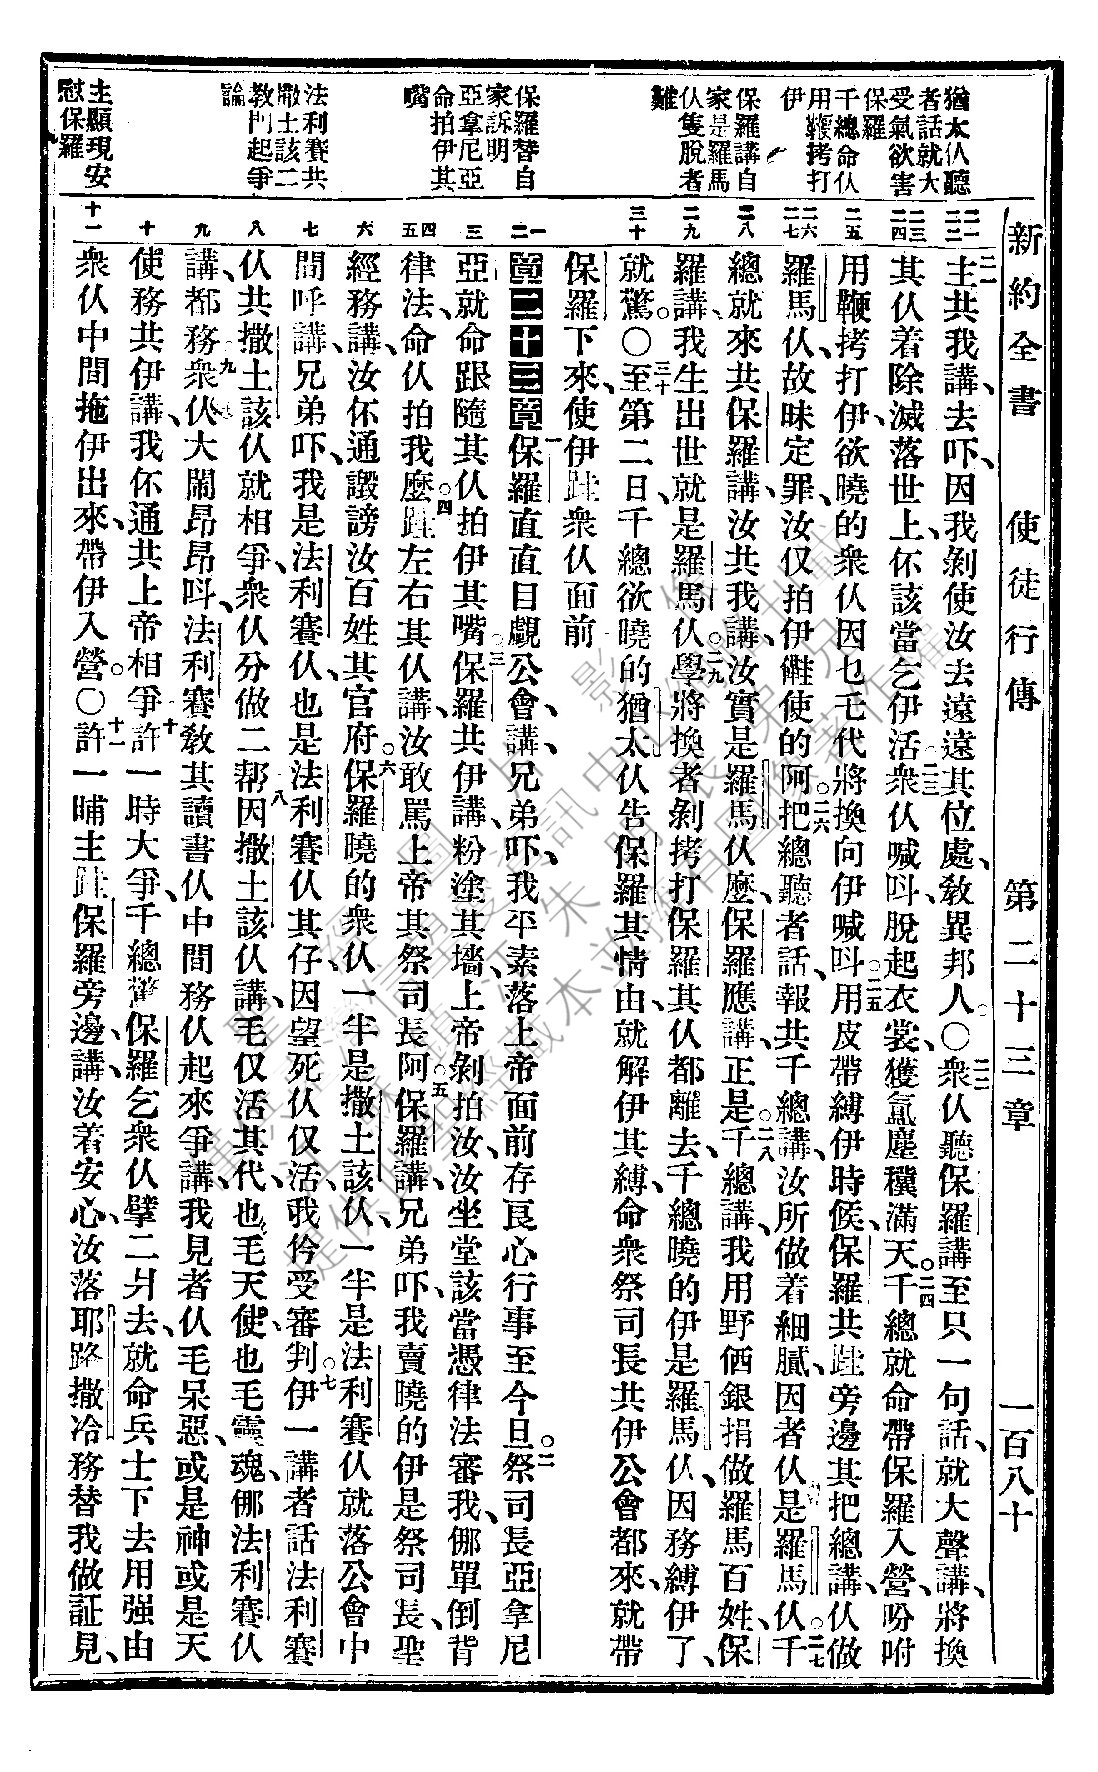 新約全書 使徒行傳 第二十三章 一百八十
猶太仈聽
者話就大
受氣欲害
保羅
千總命仈
用鞭拷打
伊
保羅講自
家是羅馬
仈隻脫者
難
保羅替自
家訴明
亞拿尼亞
命拍伊其
嘴
法利賽共
撒土該二
教門起爭
論
主顯現安
慰保羅
主共我講、去吓、因我剝使汝去遠遠其位處、教異邦人。○衆仈聽保羅講至只一句話、就大聲講、將換
其仈着除滅落世上、伓該當乞伊活衆仈喊呌脫起衣裳、獲氳塵穰滿天千總就命帶保羅入營、吩咐
用鞭拷打伊、欲曉的衆仈因乜乇代將換向伊喊呌。用皮帶縛伊時候、保羅共跬旁邊其把總講、仈做
羅馬仈、故昧定罪、汝仅拍伊㒰使的阿。把總聽者話、報共千總講、汝所做着細膩、因者仈是羅馬仈。千
總就來共保羅講、汝共我講、汝實是羅馬仈麽、保羅應講、正是。千總講、我用野価銀捐做羅馬百姓、保
羅講、我生出世就是羅馬仈。學將換者剝拷打保羅其仈都離去、千總曉的伊是羅馬仈、因務縛伊了、
就驚。○至第二日、千總欲曉的猶太仈告保羅其情由、就解伊其縛、命衆祭司長共伊公會都來、就帶
保羅下來、使伊跬衆仈面前
第二十三章保羅直直目覷公會、講、兄弟吓、我平素落上帝面前存良心行事至今旦。祭司長亞拿尼
亞就命跟隨其仈拍伊其嘴。保羅共伊講、粉塗其墻、上帝剝拍汝、汝坐堂該當憑律法審我、㑚單倒背
律法、命仈拍我麽。跬左右其仈講、汝敢罵上帝其祭司長阿。保羅講、兄弟吓、我賣曉的伊是祭司長、聖
經務講、汝伓通譭謗汝百姓其官府。保羅曉的衆仈一半是撒土該仈、一半是法利賽仈就落公會中
間呼講、兄弟吓、我是法利賽仈、也是法利賽仈其仔、因望死仈仅活、我伶受審判。伊一講者話、法利賽
仈共撒土該仈就相爭、衆仈分做二帮因撒土該仈講、毛仅活其代、也毛天使、也毛靈魂、㑚法利賽仈
講、都務、衆仈大鬧昂昂呌、法利賽教其讀書仈中間務仈起來爭講、我見者仈毛呆惡、或是神或是天
使務共伊講、我伓通共上帝相爭許一時大爭、千總驚保羅乞衆仈擘二爿去、就命兵士下去用强由
衆仈中間拖伊出來、帶伊入營。○許一晡主跬保羅旁邊、講、汝着安心、汝落耶路撒冷務替我做証見、